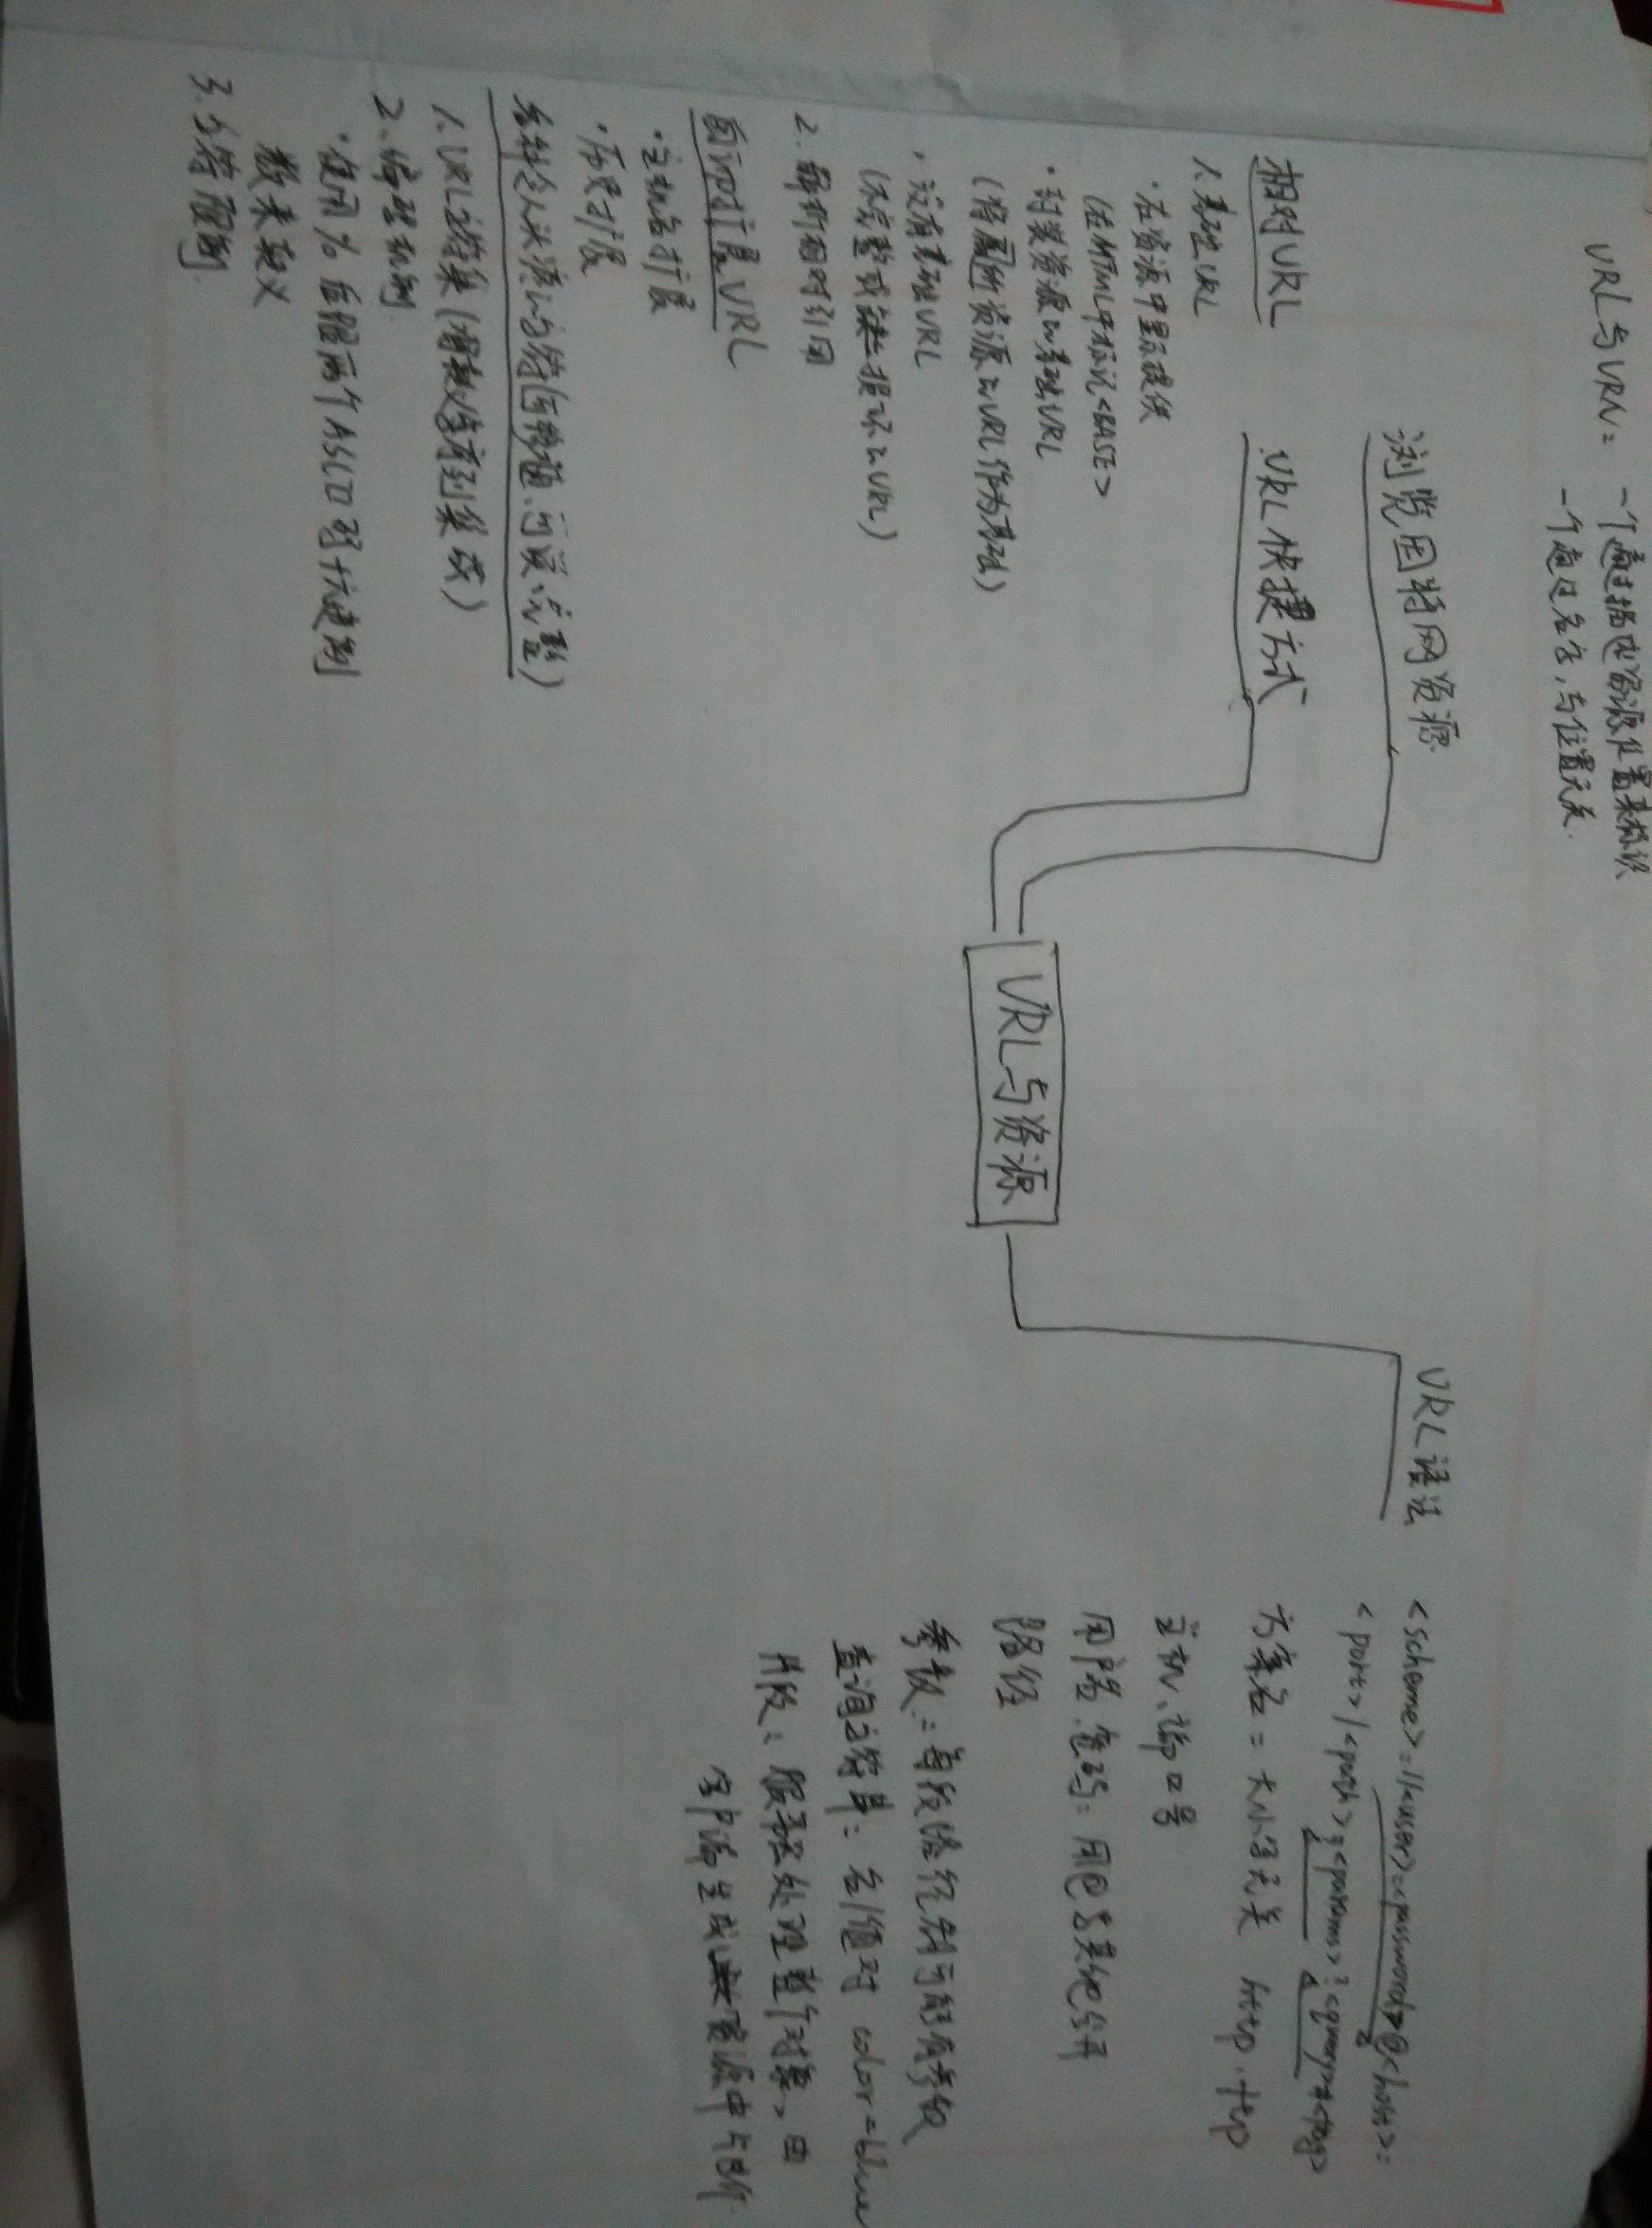 URL与URN: 一个通过描述资源位置来标识
一个通过名字,与位置无关.
浏览因特网资源
URL快捷方式
相对URL
1.基础URL
·在资源中显示提供
(在HTML中标记<BASE>
·封装资源的基础URL
(将属所资源的URL作为基础)
·没有基础URL
(不完整或损坏的URL)
2.解析相对引用
自动扩展URL
·主机名扩展
·历史扩展
各种令人头疼的字符(可移植、可读、完整)
1.URL字符集(转义序列集成)
2.编码机制
·使用%后跟两个ASCII码十六进制
数来转义
3.字符限制
URL与资源
URL语法
<scheme>://<user>:<password>@<host>:
<port>/<path>;<params>?<query>#<frag>
方案名:大小写无关 http.ftp
主机、端口号
用户名.密码:用@与其他分开
路径
参数:每段路径都可能有参数
查询字符串:名/值对 color=blue
片段:服务器处理整个对象,由
客户端生成 资源中片段